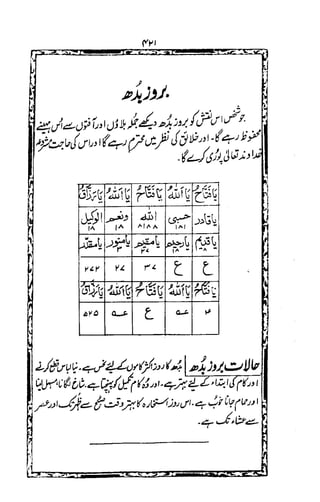 ۴۲۱
بروز بُدھ
جو شخص اس نقش کو بروز بدھ دیکھے جملہ بلاؤں اور آفتوں سے اُس مہینے
محفوظ رہے گا۔ اور خلائق کی نظر میں محترم رہے گا اور اس کی حاجت مشروع
خداوند تعالیٰ پوری کرے گا۔
یا فتاح یا اللہ یا فتاح یا اللہ یا رزاق
یا قادر حسبی اللہ ونعم الوکیل
۱۸۱ ۸۱۸۸ ۱۸ ۱۸
یا قدیم یا رحیم یا مقیم یا مقتدر
ع ع ۳۷ ۲۷ ۲۷۲
یا فتاح یا اللہ یا فتاح یا اللہ یا رزاق
ع ۵۲۵
حالات بروز بدھ بدھ کا روز اکثر کاموں کے لیئے نحس ہے۔ نیا لباس قطع کرنے
اور کام کی ابتداء کے لیئے بہتر ہے۔ اور وہ کام تکمیل کو پہنچتا ہے۔ شاخ لگانا مسہل لینا
اور حمام جانا خوب ہے۔ اس روز استخارہ کا بہتر وقت صبح سے ظہر تک اور عصر
سے عشاء تک ہے۔